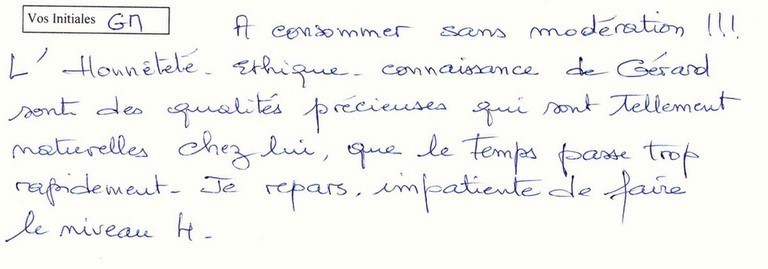 Vos Initiales GM
A consommer sans modération !!!
L'Honnêteté - Ethique - connaissance de Gérard
sont des qualités précieuses qui sont tellement
naturelles chez lui, que le temps passe trop
rapidement - Je repars, impatiente de faire
le niveau 4 -